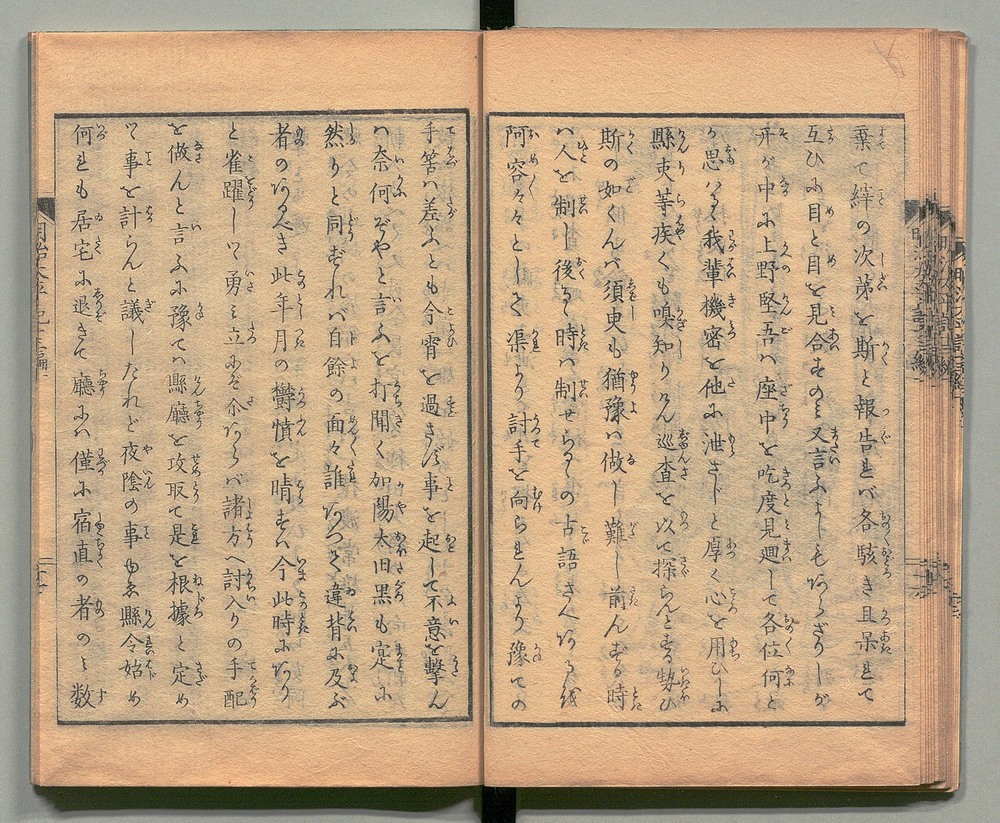 棄て繹の次第を斯と報告れバ各駭き且呆れて
互ひに目と目を見合すのミ又言ふよしもあらざりしが
中に上野堅吾ハ座中を吃度見廻して各位何と
か思はる我輩機密を他に泄さじと厚く心を用ひしに
縣吏等疾くも嗅知りけん巡査を以て探らんとする勢ひ
斯の如くんバ須臾も猶豫ハ做し難し前んずる時
ハ人を制し後るゝ時ハ制せらるゝの古語さへあるを
阿容々々として渠より討手を向られんより豫ての
手筈ハ差ふとも今宵を過さず事を起して不意を撃ん
ハ奈何ぞやと言ふを打聞く加陽太田黒も寔に
然りと同ずれバ自餘の面々誰あつて違背に及ぶ
者のあるべき此年月の欝憤を晴すハ今此時にあり
と雀躍しつゝ勇ミ立にぞ尒あらバ諸方へ討入りの手配
を做んと言ふに豫てハ縣廳を攻取て是を根據と定め
て事を計らんと議したれど夜陰の事ゆゑ縣令始め
何れも居宅に退きて廳にハ僅に宿直の者のミ数